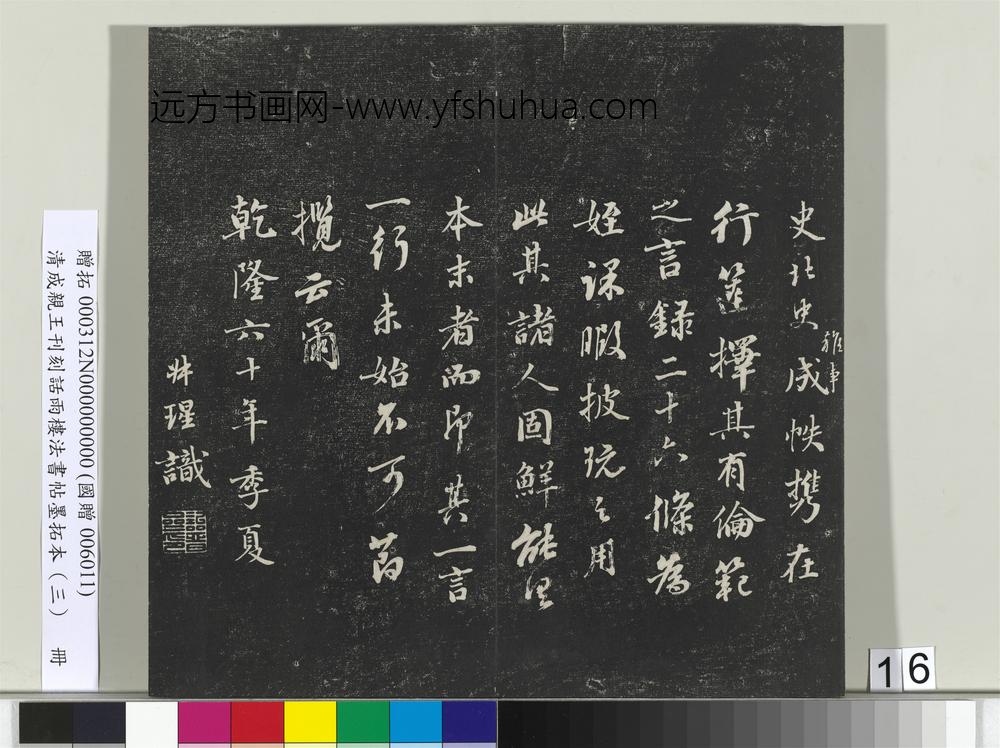 远方书画网-www.yfshuhua.com
史北史雜事成帙携在
行篋擇其有倫範
之言録二十六條為
姪課暇披玩之用
此其諸人固鮮能湼
本末者而即其一言
一行未始不可為
攬云爾
乾隆六十年季夏
瑆識
贈拓 000312N000000000 (國贈 006011)
清成親王刊刻話雨樓法書帖墨拓本（三） 冊
16